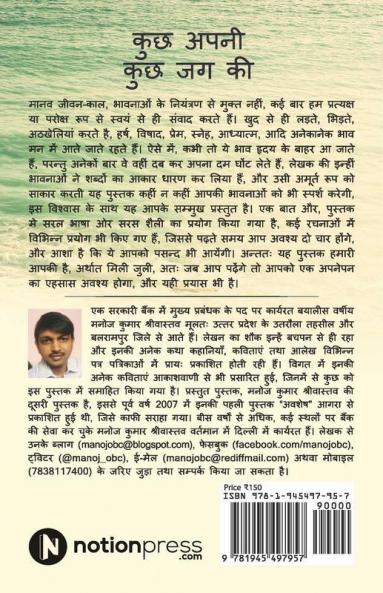 कुछ अपनी
कुछ जग की
मानव जीवन-काल, भावनाओं के नियंत्रण से मुक्त नहीं, कई बार हम प्रत्यक्ष
या परोक्ष रूप से स्वयं से ही संवाद करते हैं। खुद से ही लड़ते, भिड़ते,
अठखेलियां करते है, हर्ष, विषाद, प्रेम, स्नेह, आध्यात्म, आदि अनेकानेक भाव
मन में आते जाते रहते हैं। ऐसे में, कभी तो ये भाव हृदय के बाहर आ जाते
हैं, परन्तु अनेकों बार वे वहीं दब कर अपना दम घोंट लेते हैं, लेखक की इन्हीं
भावनाओं ने शब्दों का आकार धारण कर लिया हैं, और उसी अमूर्त रूप को
साकार करती यह पुस्तक कहीं न कहीं आपकी भावनाओं को भी स्पर्श करेगी,
इस विश्वास के साथ यह आपके सम्मुख प्रस्तुत है। एक बात और, पुस्तक
मे सरल भाषा ओर सरस शैली का प्रयोग किया गया है, कई रचनाओं में
विभिन्न प्रयोग भी किए गए हैं, जिससे पढ़ते समय आप अवश्य दो चार होंगे,
और आशा है कि ये आपको पसन्द भी आयेंगी। अन्ततः यह पुस्तक हमारी
आपकी है, अर्थात मिली जुली, अतः जब आप पढ़ेंगे तो आपको एक अपनेपन
का एहसास अवश्य होगा, और यही प्रयास भी है।
एक सरकारी बैंक में मुख्य प्रबंधक के पद पर कार्यरत बयालीस वर्षीय
मनोज कुमार श्रीवास्तव मूलतः उत्तर प्रदेश के उतरौला तहसील और
बलरामपुर जिले से आते हैं। लेखन का शौक इन्हें बचपन से ही रहा
और इनकी अनेक कथा कहानियाँ, कविताएं तथा आलेख विभिन्न
पत्र पत्रिकाओं में प्रायः प्रकाशित होती रही हैं। विगत में इनकी
अनेक कविताएं आकाशवाणी से भी प्रसारित हुई, जिनमें से कुछ को
इस पुस्तक में समाहित किया गया है। प्रस्तुत पुस्तक, मनोज कुमार श्रीवास्तव की
दूसरी पुस्तक है, इससे पूर्व वर्ष 2007 में इनकी पहली पुस्तक "अवशेष" आगरा से
प्रकाशित हुई थी, जिसे काफी सराहा गया। बीस वर्षों से अधिक, कई स्थलों पर बैंक
की सेवा कर चुके मनोज कुमार श्रीवास्तव वर्तमान में दिल्ली में कार्यरत हैं। लेखक से
उनके ब्लाग (manojobc@blogspot.com), फेसबुक (facebook.com/manojobc),
ट्विटर (@manoj_obc), ई-मेल (manojobc@rediffmail.com) अथवा मोबाइल
(7838117400) के जरिए जुड़ा तथा सम्पर्क किया जा सकता है।
Price ₹150
ISBN 978-1-945497-95-7
90000
9 781945 497957
N notionpress
.com